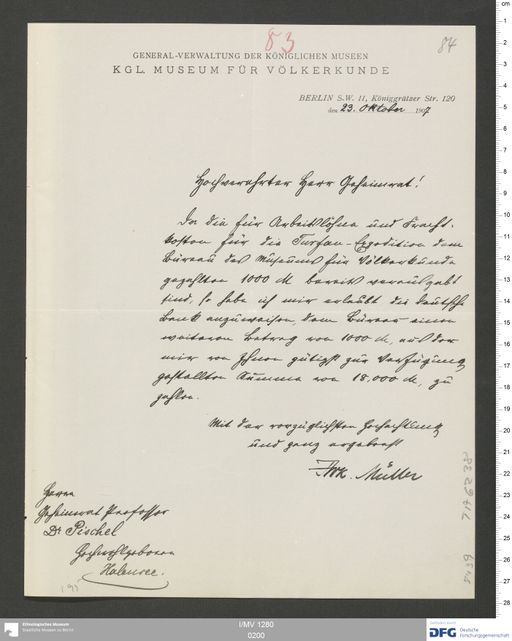 83
84
GENERAL-VERWALTUNG DER KÖNIGLICHEN MUSEEN
KGL. MUSEUM FÜR VÖLKERKUNDE
BERLIN S.W. 11, Königgrätzer Str. 120
den 23. Oktober 1907
Hochverehrter Herr Geheimrat!
Da die für Arbeitslöhne und Fracht-
kosten für die Turfan-Expedition dem
Bureau des Museums für Völkerkunde
gezahlten 1000 M bereits verausgabt
sind, so habe ich mir erlaubt die Deutsche
Bank anzuweisen, dem Büreau einen
weiteren Betrag von 1000 M. aus der
mir von Ihnen gütigst zur Verfügung
gestellten Summe von 18,000 M. zu
zahlen.
Mit der vorzüglichsten Hochachtung
und ganz ergebenst
Müller
Herrn
Geheimrat Professor
Dr Pischel
Hochwohlgeboren
Halensee.
Ethnologisches Museum
Staatliche Museen zu Berlin
I/MV 1280
0200
DFG Deutsche
Forschungsgemeinschaft